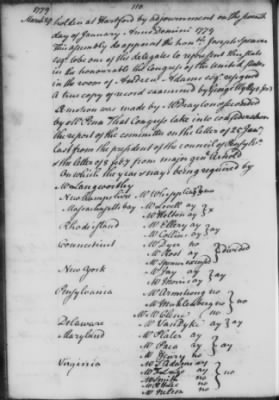 1779
110
March 24
holden at Hartford by adjournment on the seventh
day of January. Anno Domini 1779
This assembly do appoint the honble Joseph Spencer
esqr to be one of the delegates to represent this state
in the honourable the Congress of the United States
in the room of Andrew Adams esqr resigned
A true copy of record examined by George Wyllys Secy
A motion was made by Mr Drayton seconded
by Mr Penn That Congress take into consideration
the report of the committee on the letter of 25 Jany
last from the president of the council of Pensylva
& the letter of 8 feby from major genl Arnold
On which the yeas & nays being required by
Mr Langworthy
New hampshire Mr Whipple no } no
Massachusetts bay Mr Lovell ay
Mr Holten ay } ay
Rhode island Mr Ellery ay
Mr Collins ay } ay
Connecticut Mr Dyer no
Mr Root ay } divided
Mr Spencer excused
New York Mr Jay ay
Mr Morris ay } ay
Pensylvania Mr Armstrong no
Mr Muhlenberg no } no
Mr McClene no
Delaware Mr Van Dyke ay } ay
Maryland Mr Plater ay
Mr Paca ay } ay
Mr Henry no
Virginia Mr T Adams ay
Mr F L Lee ay
Mr Smith no } no
no
Mr Nelson no